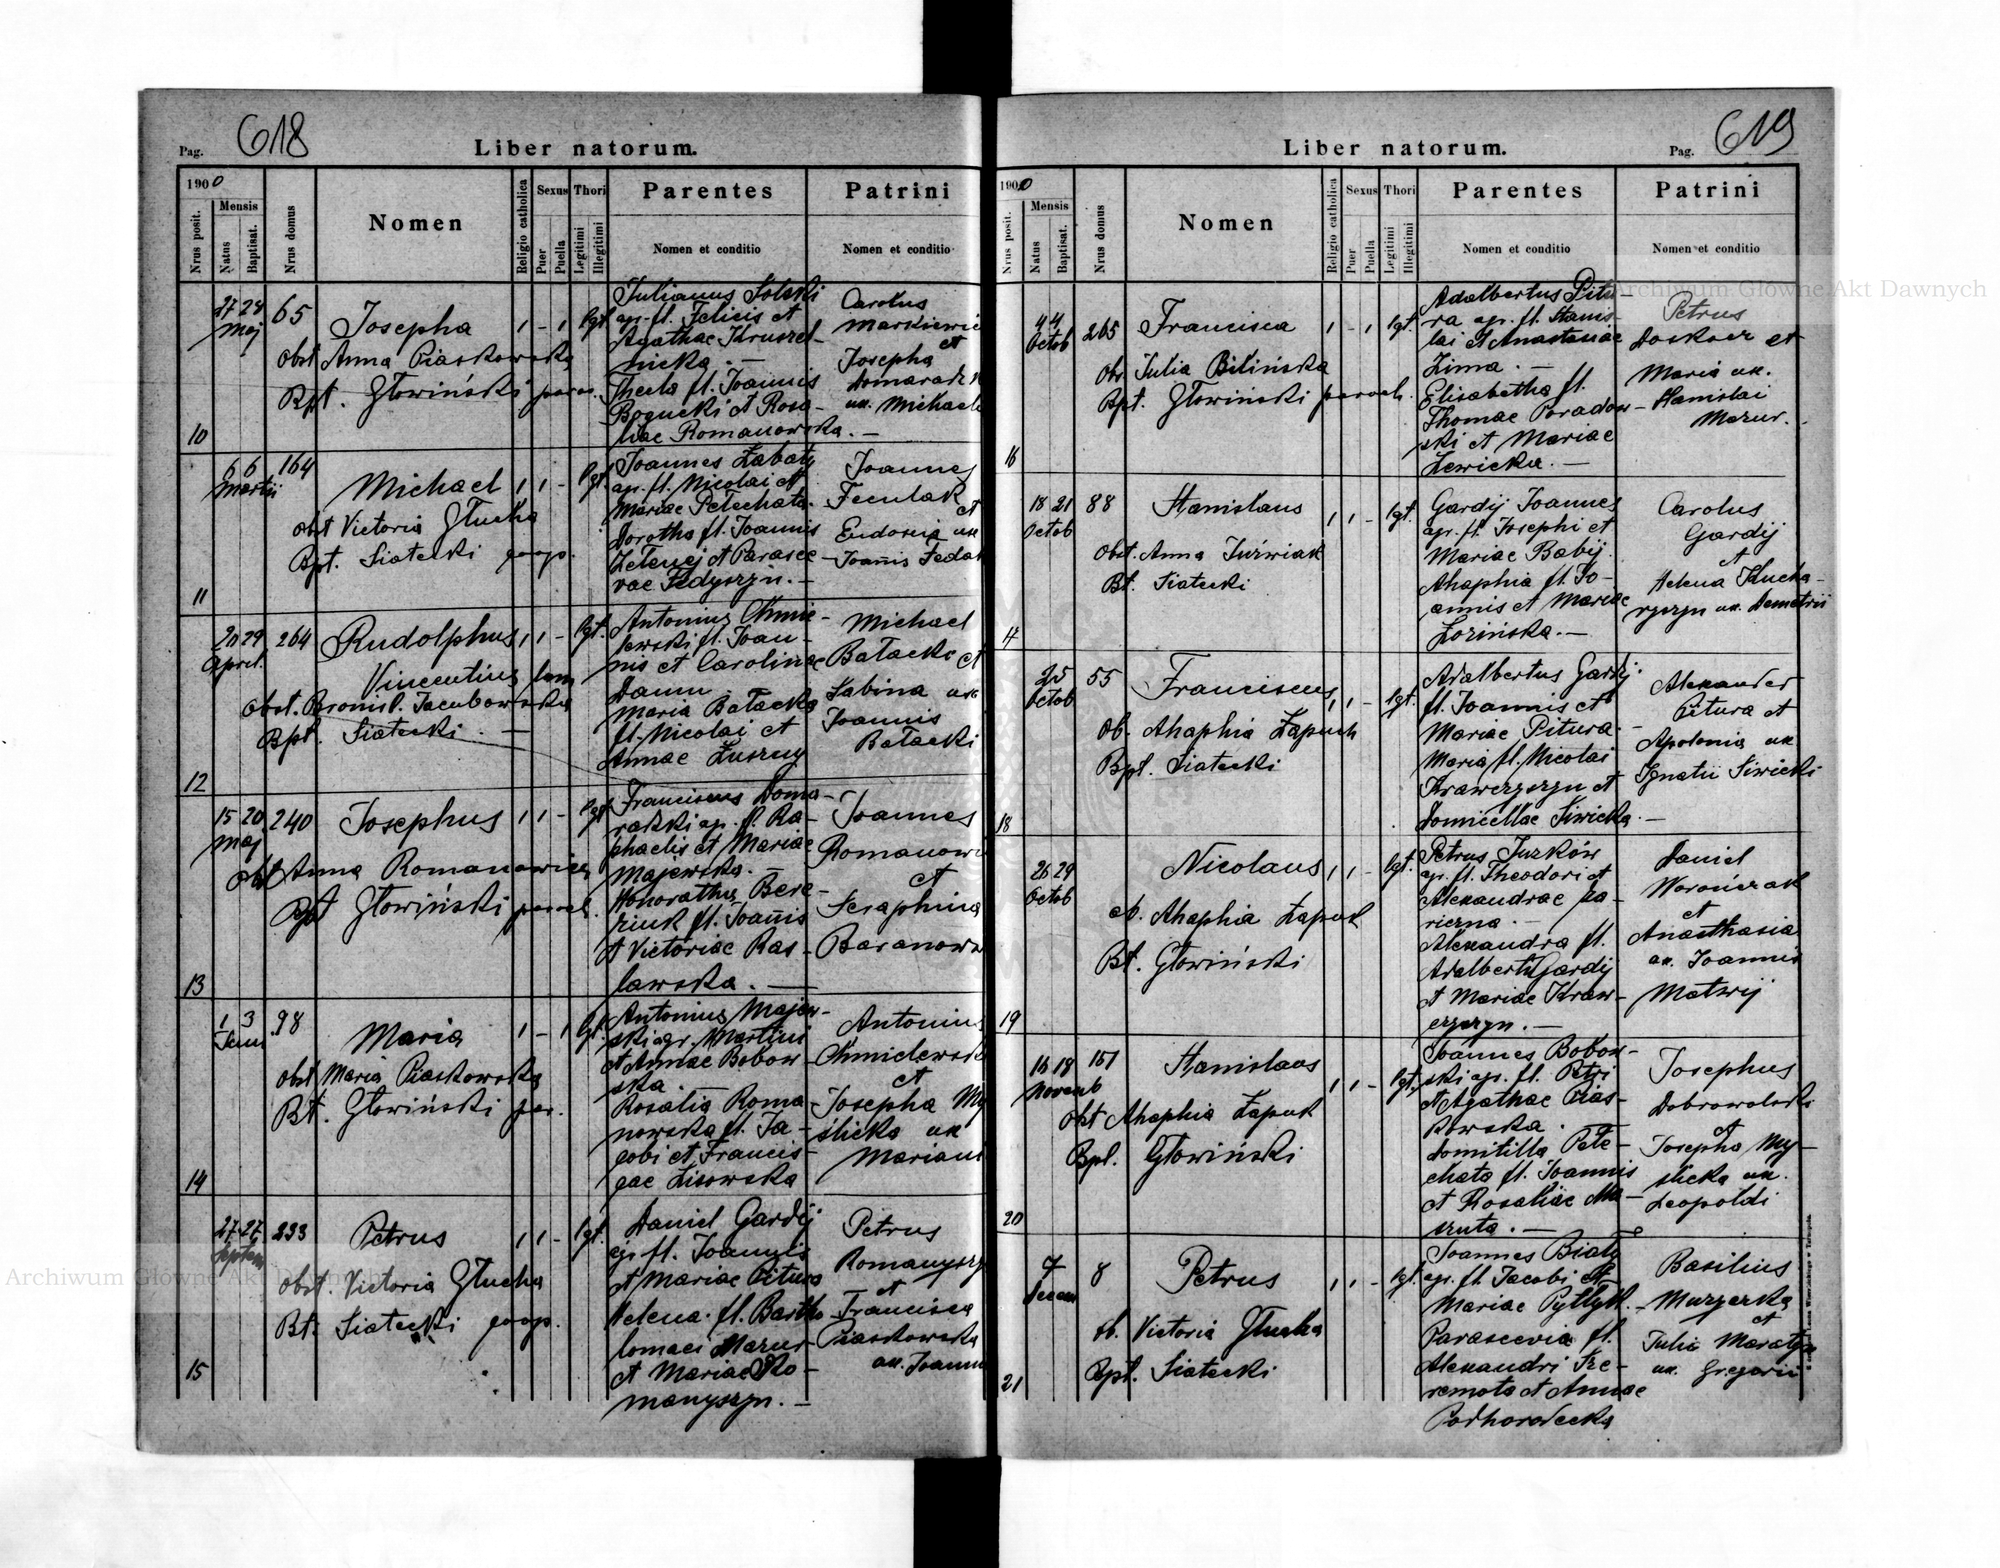 Pag. 618
Liber natorum.
1900
Nrus posit.
Mensis
Natus
Baptisat.
Nrus domus
Nomen
Religio catholica
Sexus
Puer
Puella
Thori
Legitimi
Illegitimi
Parentes
Nomen et conditio
Patrini
Nomen et conditio
10
27 28
Maj
65
Josepha
1 - 1 lgt.
obst Anna Piaskowska
Bpt. Głowiński paroch.
Julianus Solski
agr. fl. Felicis et
Agathae Kruszel-
nicka. —
Thecla fl. Joannis
Bogucki et Rosa-
liae Romanowska. —
Carolus
Markiewic
et
Josepha
Domaradzk
ux. Michaeli
11
6 6
Martii
164
Michael
1 1 - lgt.
obst Victoria Głucha
Bpt. Siatecki coop.
Joannes Łabaty
agr. fl. Nicolai et
Mariae Petechata.
Dorothea fl. Joannis
et Parasce-
vae Fedyszyn. —
Joannes
Feculak
et
Eudoxia ux
Joannis Fedak
12
20 29
April.
264
Rudolphus
1 1 - lgt.
Vincentius
obst. Bronisl. Jacubowska
Bpt. Siatecki. —
Antonius Chmie-
lewski fl. Joan-
nis et Carolinae
Daum
Maria Batacka
fl. Nicolai et
Annae
Michael
Batacki et
Sabina ux
Joannis
Batacki
13
15 20
Maj
240
Josephus
1 1 - lgt.
obst Anna Romanowicz
Bpt Głowiński paroch.
Franciscus Doma-
radzki agr. fl. Ra-
phaelis et Mariae
Majewska. —
Honoratha Bere-
ziuk fl. Joannis
et Victoriae Ras-
lawska. —
Joannes
Romanowi
et
Seraphina
Baranows
14
1 3
Juni
98
Maria
1 - 1 lgt.
obst Maria Piaskowska
Bt. Głowiński par.
Antonius Majew-
ski agr. Martini
et Annae Bobow-
ska.
Rosalia Roma-
nowska fl. Ja-
cobi et Francis-
cae Lisowska
Antonius
Chmielewski
et
Josepha My
slicka ux
Mariani
15
27 27
Septem
233
Petrus
1 1 - lgt.
obst. Victoria Głucha
Bt. Siatecki coop.
Daniel Gardij
agr. fl. Joannis
et Mariae Pitura
Helena fl. Bartho
lomaei Mazur
et Mariae Ro-
manyszyn. —
Petrus
Romanyszy
et
Francisca
Piaskowska
ux. Joannis
Liber natorum.
Pag. 619
1900
Nrus posit.
Mensis
Natus
Baptisat.
Nrus domus
Nomen
Religio catholica
Sexus
Puer
Puella
Thori
Legitimi
Illegitimi
Parentes
Nomen et conditio
Patrini
Nomen et conditio
16
4 4
Octob
265
Francisca
1 - 1 lgt.
Obs. Julia Bilińska
Bpt. Głowiński paroch.
Adalbertus Pitu-
ra agr. fl. Stanis-
lai et Anastasiae
Zima. —
Elisabetha fl.
Thomae Paradow-
ski et Mariae
Lewicka. —
Petrus
Doskocz et
Maria ux.
Stanislai
Mazur.
17
18 21
Octob
88
Stanislaus
1 1 - lgt.
Obst. Anna Juźwiak
Bt. Siatecki
Gardij Joannes
agr. fl. Josephi et
Mariae Babij.
Ahaphia fl. Jo-
annis et Mariae
Łozińska. —
Carolus
Gardij
et
Helena Kucha-
ryszyn ux. Demetrii
18
25
Octob
55
Franciscus
1 1 - lgt.
Ob. Ahaphia Łapuch
Bpt. Siatecki
Adalbertus Gardij
fl. Joannis et
Mariae Pitura.
Maria fl. Nicolai
Krawczyszyn et
Domicellae Siwicka. —
Alexander
Pitura et
Apolonia ux.
Ignatii Siwicki
19
26 29
Octob
Nicolaus
1 1 - lgt.
ob. Ahaphia Łapuch
Bt. Głowiński
Petrus Jurków
agr. fl. Theodori et
Alexandrae Za-
riczna. —
Alexandra fl.
Adalberti Gardij
et Mariae Kraw-
czyszyn. —
Daniel
Worończak
et
Anasthasia
ux. Joannis
Matwij
20
16 18
Novemb
151
Stanislaus
1 1 - lgt.
Obst Ahaphia Łapuk
Bpt. Głowiński
Joannes Bobow-
ski agr. fl. Petri
et Agathae Pias-
kowska.
Domitilla Pete-
chata fl. Joannis
et Rosaliae Ma-
zruta. —
Josephus
Dobrowolski
et
Josepha My-
slicka ux.
Leopoldi
21
7
Decem
8
Petrus
1 1 - lgt.
ob. Victoria Głucha
Bpt. Siatecki
Joannes Biały
agr. fl. Jacobi et
Mariae Pyłłyk.
Parascevia fl.
Alexandri Sze-
remeta et Annae
Podhorodecka
Basilius
Muzyczka
et
Julia
ux. Gregorii
Archiwum Główne Akt Dawnych
Archiwum Główne Akt Dawnych